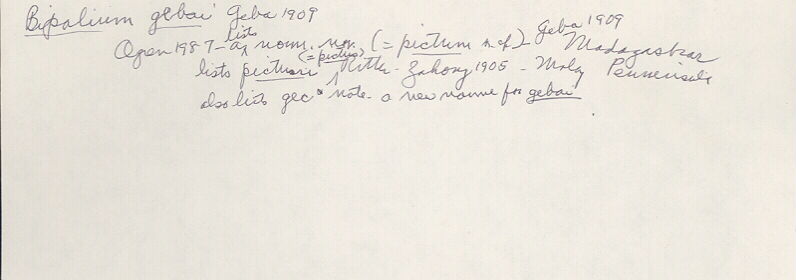 Bipalium gebai Geba 1909
Ogren 1987 - lists as nom. nov. (= pictum n. of) - Geba 1909 Madagaskar
lists (= pictus) Ritter-Zahony 1905 - Malay Penninsula
also lists geo note - a new name for gebai